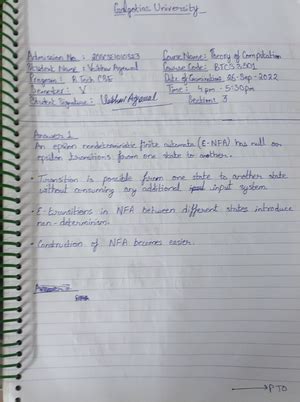 Galgotias University
Admission No. : 20SCSE1010523
Course Name: Theory of Computation
Student Name : Vaibhav Agarwal
Course Code: BTCS3501
Program : B.Tech CSE
Date of Examination 26-Sep-2022
Semester : V
Time : 4 pm - 5:30 pm
Student Signature : Vaibhav Agarwal
Section: 3
Answer 1
An epsilon nondeterministic finite automata (E-NFA) has null or
epsilon transitions from one state to another.
• Transition is possible from one state to another state
without consuming any additional input system.
• E-transitions in NFA between different states introduce
non-determinism.
• Construction of NFA becomes easier.
PTO